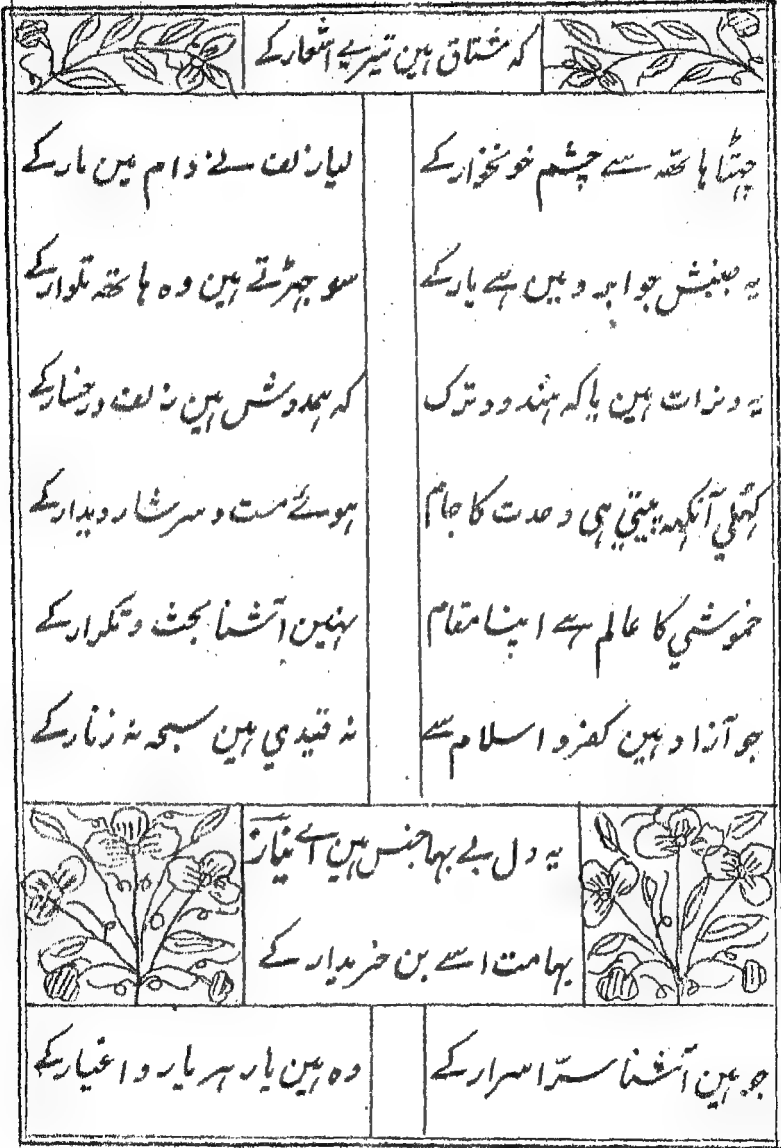 که مشتاق ہین تیرے اشعار کے
چہٹا ہاتھہ سے چشم خونخوار کے
لیا زلف نے دام مین مار کے
یہ جنبش جو ابرو مین ہے یار کے
سو جہڑتے ہین وہ ہاتھہ تلوار کے
یہ دنرات ہین یا کہ ہندو و ترک
کہ ہمدوش ہین زلف و رخسار کے
کہلی آنکہہ پیتی ہی وحدت کا جام
ہوئے مست و سرشار دیدار کے
خموشی کا عالم ہے اپنا مقام
نہین آشنا بحث و تکرار کے
جو آزاد ہین کفر و اسلام سے
نہ قیدی ہین سبحہ نہ زنار کے
یہ دل بے بہا جنس ہین اے نیاز
بہا مت اسے بن خریدار کے
جو ہین آشنا سرّ اسرار کے
وہ ہین یار ہر یار و اغیار کے